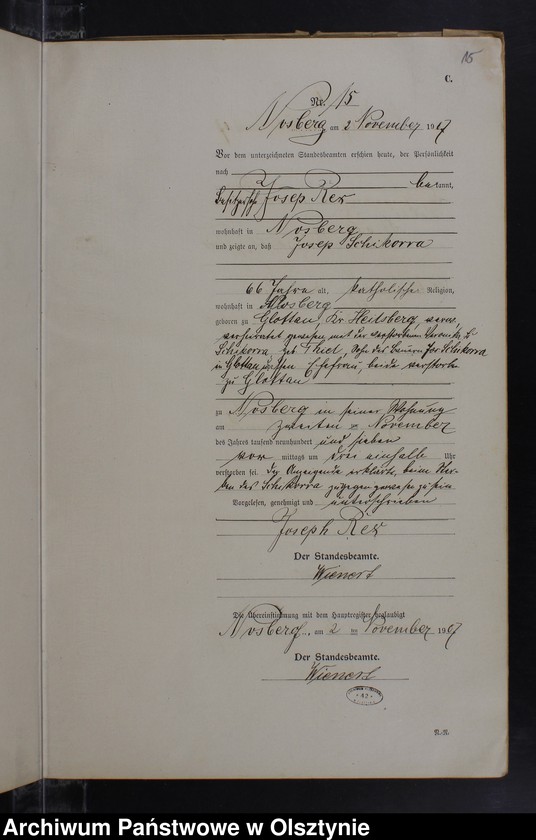 15
C.
Nr. 15
Nosberg am 2 November 1907
Vor dem unterzeichneten Standesbeamten erschien heute, der Persönlichkeit
nach
kannt,
Joseph Rex
wohnhaft in Nosberg
und zeigte an, daß Josep Schikorra
66 Jahre alt, katholischer Religion,
wohnhaft in Nosberg
geboren zu Glottau, Kr Heilsberg, war
verheiratet gewesen mit der verstorbenen
Schikorra geb Thiel, Sohn des Bauern Jos Schikorra
in Glottau dessen Ehefrau, beide verstorben
zu Glottau
zu Nosberg in seiner Wohnung
am zweiten November
des Jahres tausend neunhundert und sieben
vor mittags um drei einhalb Uhr
verstorben sei. Der Anzeigende erklärte, beim Ster-
ben des Schikorra zugegen gewesen zu sein
Vorgelesen, genehmigt und unterschrieben
Joseph Rex
Der Standesbeamte.
Wienert
Die Übereinstimmung mit dem Hauptregister beglaubigt
Nosberg, am 2 ten November 1907
Der Standesbeamte.
Wienert
Archiwum Państwowe w Olsztynie